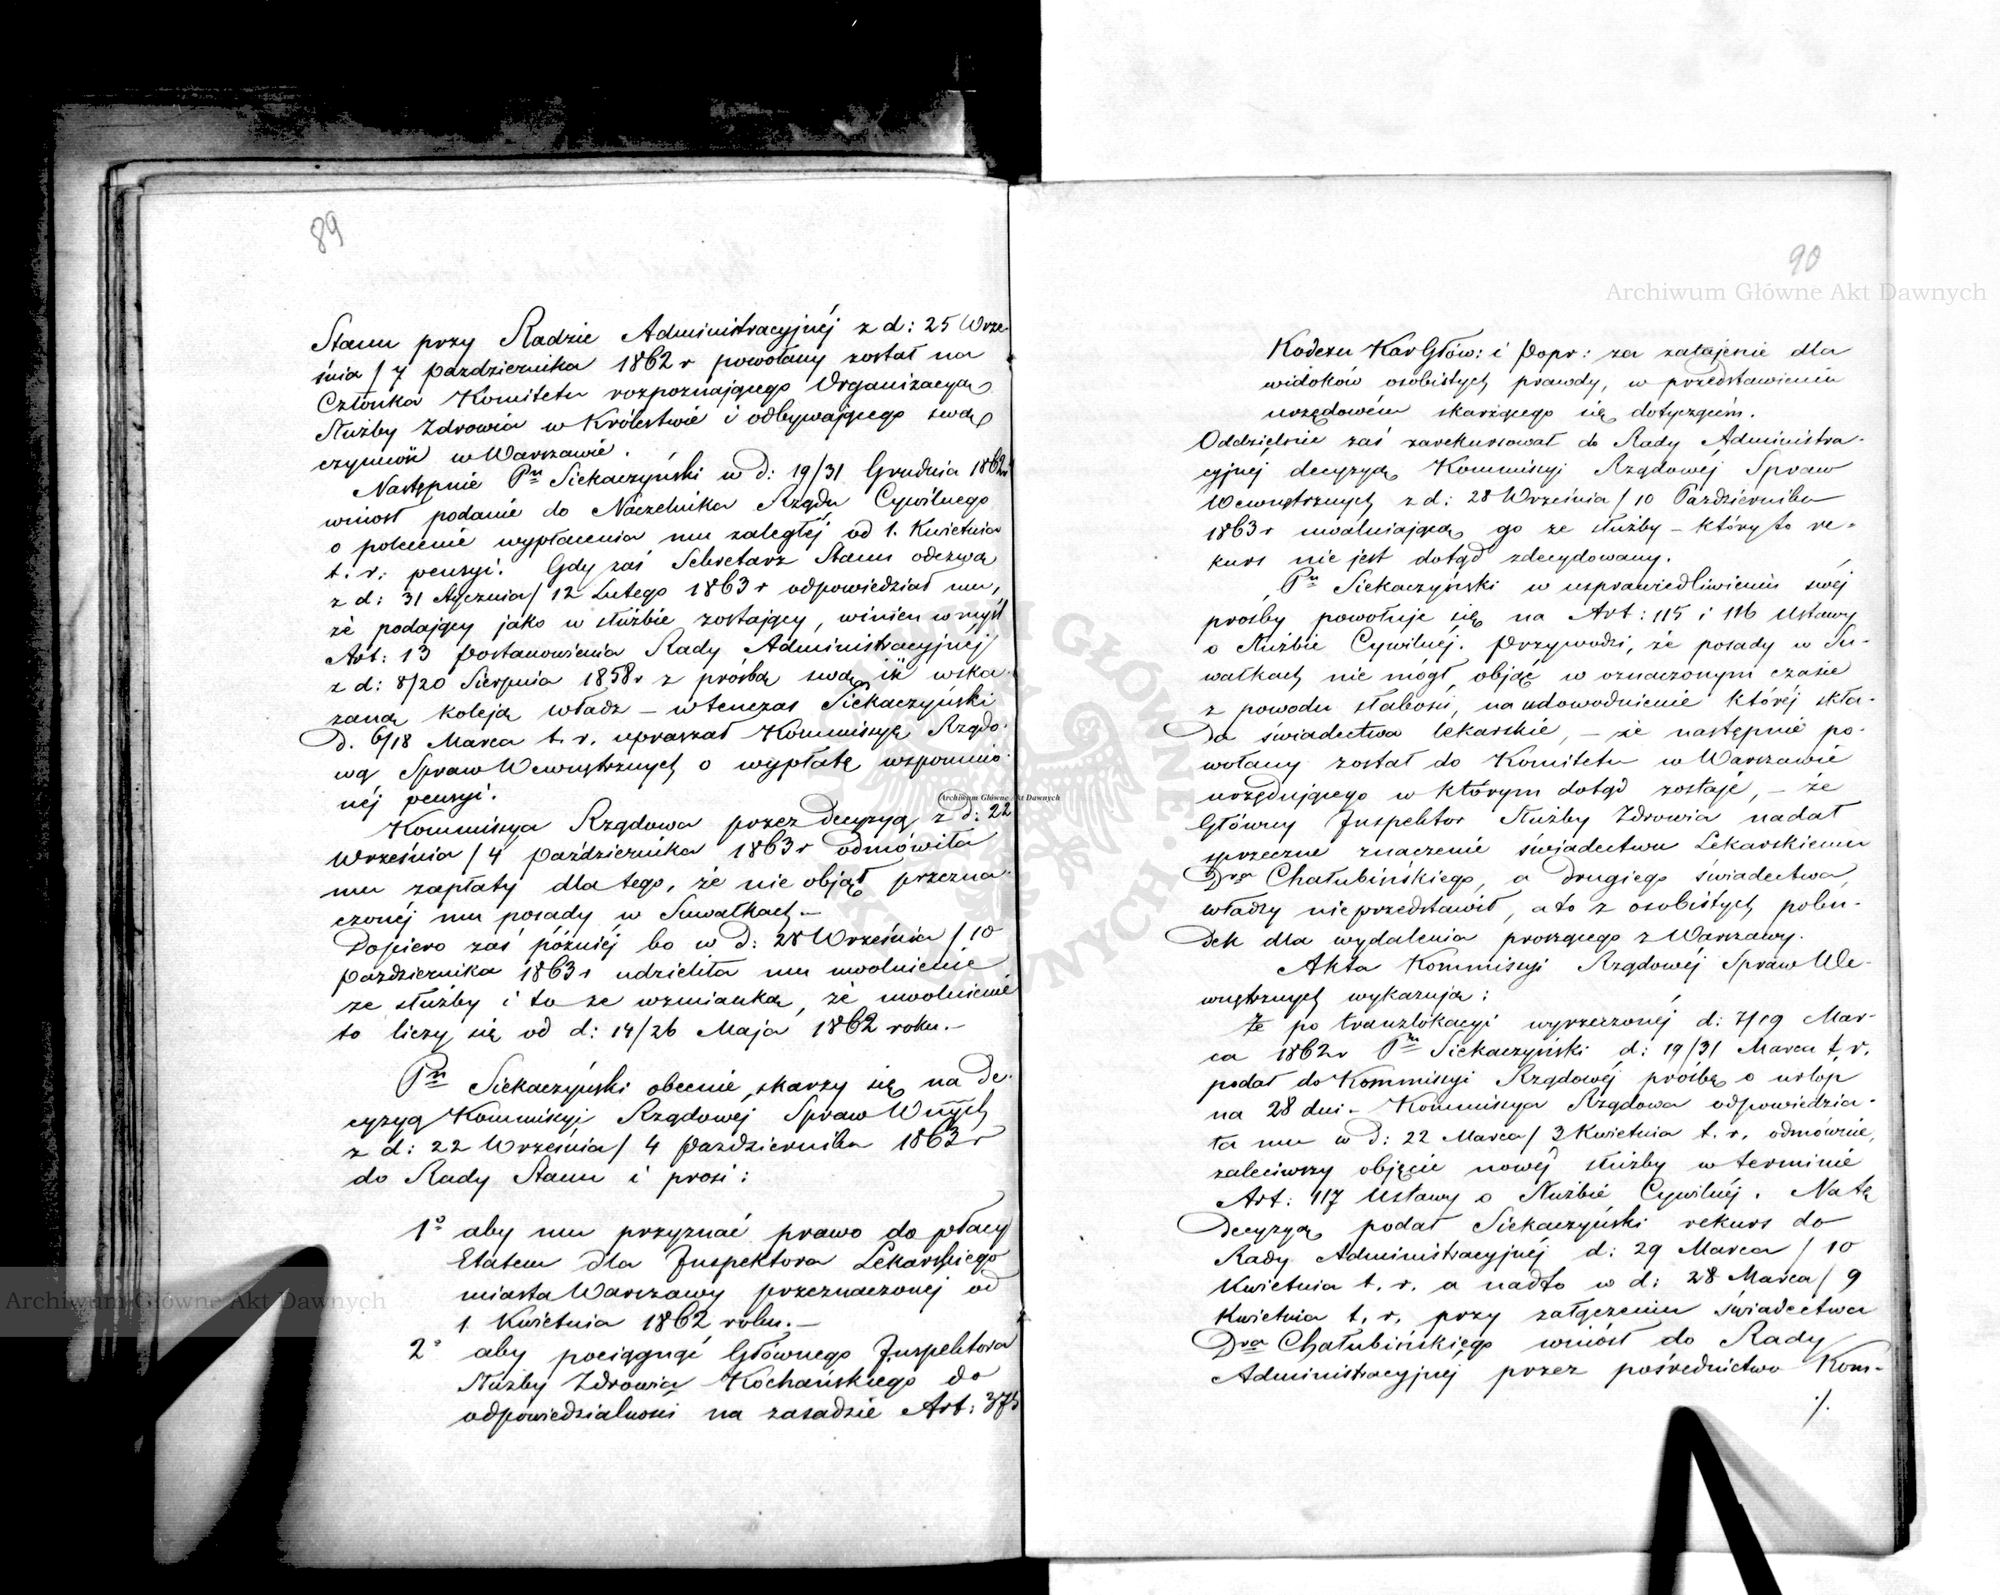 89
Stanu przy Radzie Administracyjnéj z d: 25 Wrze-
śnia / 7 Października 1862 r powołany został na
Członka Komitetu rozpoznającego Organizacyą
Służby Zdrowia w Królestwie i odbywającego swą
czynność w Warszawie.
Następnie Pn Siekaczyński w d: 19/31 Grudnia 1862 r
wniosł podanie do Naczelnika Rządu Cywilnego
o polecenie wypłacenia mu zaległéj od 1. Kwietnia
t. r. pensyi. Gdy zaś Sekretarz Stanu odezwą
z d: 31 Stycznia / 12 Lutego 1863 r odpowiedział mu,
że podający jako w służbie zostający, winien w myśl
Art: 13 Postanowienia Rady Administracyjnéj
z d: 8/20 Sierpnia 1858 r z prośbą swą iść wska-
zaną koleją władz – wtenczas Siekaczyński
d. 6/18 Marca t. r. upraszał Kommissyę Rządo-
wą Spraw Wewnętrznych o wypłatę wspomnio-
néj pensyi.
Kommissya Rządowa przez decyzyą z d: 22
Września / 4 Października 1863 r odmówiła
mu zapłaty dla tego, że nie objął przezna-
czonéj mu posady w Suwałkach.–
Dopiero zaś późniéj bo w d: 28 Września / 10
Października 1863 r udzieliła mu uwolnienie
ze służby i to ze wzmianką, że uwolnienie
to liczy się od d: 14/26 Maja 1862 roku.–
Pn Siekaczyński obecnie skarży się na de-
cyzyą Kommissyi Rządowéj Spraw Wnętych
z d: 22 Września / 4 Października 1863 r
do Rady Stanu i prosi:
1° aby mu przyznać prawo do płacy
Etatem dla Inspektora Lekarskiego
miasta Warszawy przeznaczonéj od
1 Kwietnia 1862 roku.–
2° aby pociągnąć Głównego Inspektora
Służby Zdrowia Kochańskiego do
odpowiedzialności na zasadzie Art: 375
90
Kodexu Kar Głów: i Popr: za zatajenie dla
widoków osobistych prawdy, w przedstawieniu
urzędowém skarżącego się dotyczącém.
Oddzielnie zaś zarekursował do Rady Administra-
cyjnéj decyzyą Kommissyi Rządowéj Spraw
Wewnętrznych z d: 28 Września / 10 Października
1863 r uwalniającą go ze służby – który to re-
kurs nie jest dotąd zdecydowany.
Pn Siekaczyński w usprawiedliwieniu swéj
prośby powołuje się na Art: 115 i 116 Ustawy
o Służbie Cywilnéj. Przywodzi, że posady w Su-
wałkach nie mógł objąć w oznaczonym czasie
z powodu słabości, na udowodnienie któréj skła-
da świadectwa lekarskie, – że następnie po-
wołany został do Komitetu w Warszawie
urzędującego w którym dotąd zostaje, – że
Główny Inspektor Służby Zdrowia nadał
sprzeczne znaczenie świadectwu Lekarskiemu
Dra Chałubińskiego, a drugiego świadectwa
władzy nie przedstawił, a to z osobistych pobu-
dek dla wydalenia proszącego z Warszawy.
Akta Kommissyi Rządowéj Spraw We-
wnętrznych wykazują:
Że po tranzlokacyi wyrzeczonéj d: 7/19 Mar-
ca 1862 r Pn Siekaczyński d: 19/31 Marca t. r.
podał do Kommissyi Rządowéj prośbę o urlop
na 28 dni – Kommissya Rządowa odpowiedzia-
ła mu w d: 22 Marca / 3 Kwietnia t. r. odmównie,
zaleciwszy objęcie nowéj służby w terminie
Art: 117 Ustawy o Służbie Cywilnéj. Na tę
Decyzyą podał Siekaczyński rekurs do
Rady Administracyjnéj d: 29 Marca / 10
Kwietnia t. r. a nadto w d: 28 Marca / 9
Kwietnia t. r. przy załączeniu świadectwa
Dra Chałubińskiego wniósł do Rady
Administracyjnéj przez pośrednictwo Kom-
./.
Archiwum Główne Akt Dawnych
Archiwum Główne Akt Dawnych
Archiwum Główne Akt Dawnych